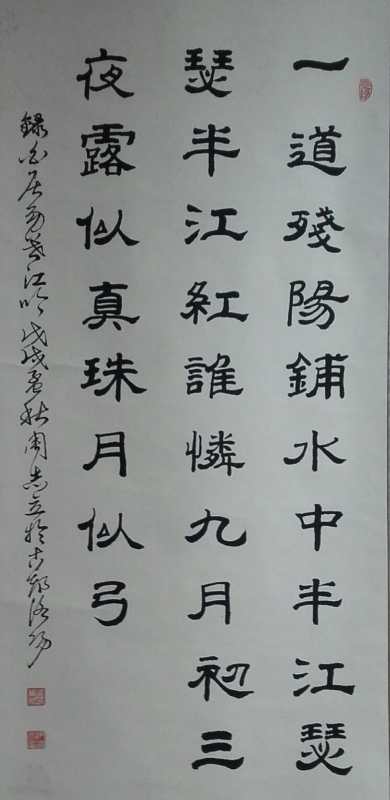 一道殘陽鋪水中半江瑟
瑟半江紅誰憐九月初三
夜露似真珠月似弓
錄白居易暮江吟戊戌孟秋周志立於古都洛陽